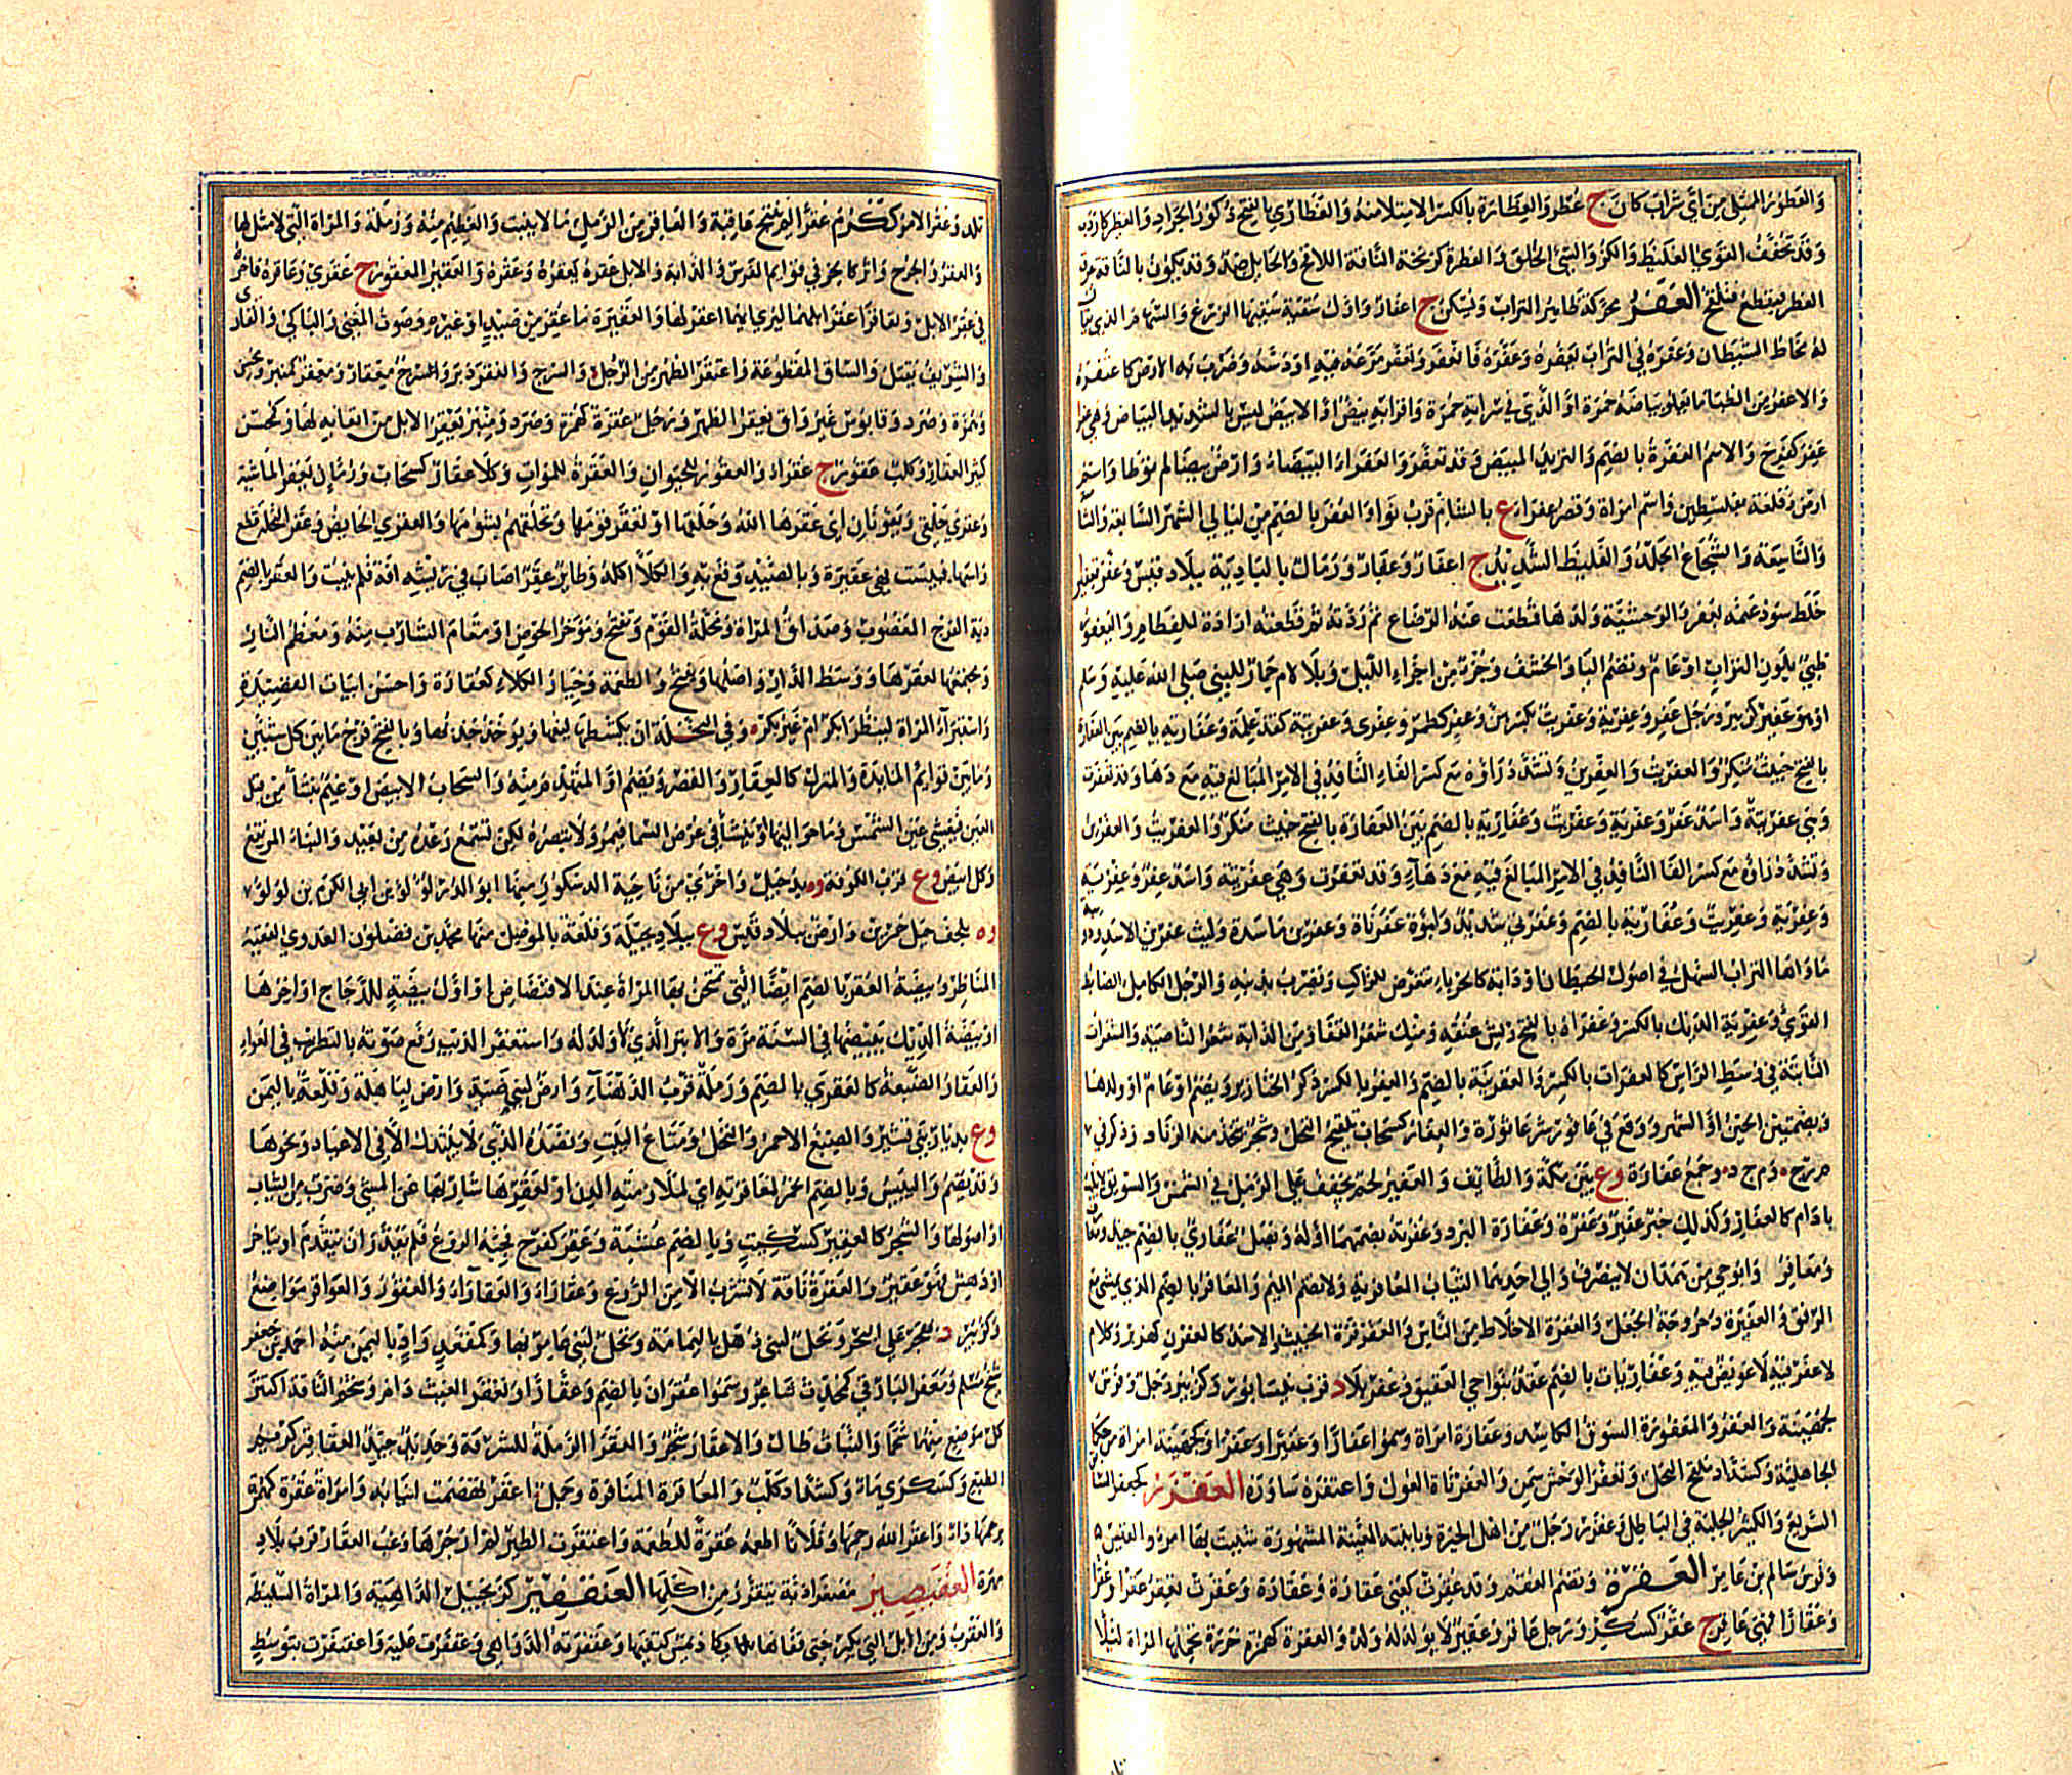 وَالعَظُورُ الممتلئ مِن اَيّ شَراب كانَ ج عُظُر وَالعِظارَة بالكسر الامتلاء منه وَالعَظارِيّ بالفتح ذُكور الجَرادِ وَالعِظْيَر كاردَب
وَقَد تُخَفَّفُ القَوِيُ الغَليظ وَالكَزُّ وَالسَّيّئ الخُلق وَالعَظِرَة كزَنخَة النّاقة اللاقح وَالحَائل ضِدّ وَقد يكون بالنّاقة عِرق
العَظر فيقطع فتلقح العَفَرُ محرّكة ظاهر التراب وَيُسكن ج اعفار وَاوّل سَقيَة سُقيها الزرع وَالسُّهَام الذي يقال
لهُ مُخَاطُ الشَّيطَان وَعَفَرَهُ في التُّراب يَعفِرهُ وَعَفَّرَهُ فَانعَفَر وَتعَفَّر مَرَّغهُ فيه اودَسَّهُ وَضَرَب به الارض كاعتَفَرهُ
وَالاعفَر من الظّباء ما يَعلو بَياضَهُ حُمرَة اوِ الَّذِي في سَراتِهِ حُمرَة وَاقرابُهِ بِيض اوِ الابيَضُ ليس بالشّديد البياض وَهِيَ عَفرا
عَفِرَ كفَرِحَ وَالاسم العُفرَةُ بالضَّم وَالثريد المبَيَّض وَقد تعَفَّرَ وَالعَفرَاء البَيضَاء وَارض بيضَا لم توطا وَاسم
ارض وَقلعَة بفلسطين وَاسم امرَاة وَقصر عفرَاء ع بالشّام قرب نَواءَ وَالعُفر بالضّم من ليَالي الشّهر السّابعة وَالثا
وَالتَّاسِعَة وَالشُّجَاعُ الجَلدُ وَالغَليظ الشَّديد ج اعفَار وَعِفَار وَرِمَال بالبَاديَة ببلاد قيس وَعُفر تعفير
خَلَط سودَ غنَمه بعُفر وَالوَحشيَّة وَلدَها قَطَعَت عنهُ الرضاع ثم رَدَّتهُ ثم قطَعَتهُ ارَادَة للفِطام وَاليَعفورُ
ظَبي بلَون التراب اوعامّ وَتضم اليَا وَالخِشف وَجُزء من اجزاء اللَّيل وَبلَا لام حِمَار للنبي صَلى اللهُ عَليه وَسَلم
اوهو عُفير كزبير وَرَجُل عِفر وَعِفرِيَة وَعِفرِيت بكسرهنّ وَعِفِرّ كطِمِرّ وَعِفِرّى وَعَفَرنِيَة كقذَعمِلَة وَعُفَارِيَة بالضّم بيّن العَفارَة
بالفتح خبيث مُنكر وَالعِفريت وَالعِفرين وَتشدّد رَاؤه مَع كسر الفاء النّافِذُ في الامر المُبَالغ فيه مَع دَهَا وَقد تعفرَت
وَهي عِفريتة وَاسَد عِفر وَعِفريَة وَعِفريت وَعُفَاريَة بالضم بيّن العَفارَة بالفتح خبيث مُنكر وَالعفريت وَالعفرين
وَتشدّد رَاؤهُ مَع كسر الفَا النَّافِذ في الامر المبَالغ فيه مَعَ دَهَاءٍ وَقد تعفرَت وَهي عِفريتة وَاسَد عفر وَعِفريَة
وَعِفريَة وَعِفريت وَعُفَارِيَة بالضم وَعَفَرنى شديد وَلبُوَة عَفَرنَاة وَعِفرّين مَاسَدَة وَليث عِفرّين الاسَد وَدُوَيبَّة
مَاوَاهَا التراب السَّهل في اصُول الحيطَان اودَابة كالحِرباءِ تتَعَرَّض للرَّاكب وَتضرب بذنبه وَالرَّجل الكاملُ الضابط
القَويّ وَعِفرِيَة الديك بالكسر وَعَفرَاة بالفتح ريش عُنُقه وَمِنك شَعر القَفا وَمن الدابة شعر الناصيَة وَالشَّعَرات
النَّابتة في وَسَط الرَّاس كالعِفرَات بالكسر وَالعُفَرنِيَة بالضم وَالعفر بالكسر ذكر الخنَازير وَيضم اوعامّ اووَلدهَا
وَبضمتَين الحين او الشهر وَوقع في عافور شَرّ عَاثوره وَالعفار كسَحَاب تلقيح النخل وشجَر يُتّخَذ منه الزنا و وَذكر في
م ر خ ه وَم ج د ه وجمع عفارة وع بين مَكّة وَالطَّائف وَالعفير لحم يُجَفَّف على الرّمل في الشّمس وَالسّويق لا يلتّ
بادَام كالعفار وَكذلك خبز عفير وَعَفرَة وَعَفارَة البرد وَعُفُرّته بضمّهمَا اوله وَنصل عُفاريّ بالضم جيّد وَيقال
وَمَعَافِر وَابوحي من هَمدَان لا ينصرف وَالى احدهما الثياب المعَافريَة وَلا تضم الميم وَالمعافر بالضم الذي يمشي مع
الرُفق وَالعَفيرَة دُحروجة الجُعل وَالعُفُرَّة الاخلاط من النَّاس وَالعَفَرفرَة الخبيث وَالاسد كالعِفرن كهزبر وَكلام
لا عَفَر فيه لا عَويصَ فيه وَعُفَاريات بالضم عقد بنَواحي العقيق وَعفربلا د قرب بيسابور وَكزبير رَجل وَفرس
لجُهَينَة وَالعَفَر وَالمَعفُورَة السوق الكاسدة وَعفَارَة امرَاة وَسموا عفارًا وَعُفيرًا وَعَفرا وَكجهينة امراة من حكما
الجاهلية وَكشَدّاد ملقح النخل وَتعفر الوحش سَمن وَالعفرنَاة الغول وَاعتفره سَاوَره العَفزَر كجعفر السّا
السّريع وَالكثير الجلبَة في البَاطل وَعَفزر رَجل من اهل الحيرة وَبابنته المغنية المشهورة شبّب بها امرؤ القيس ه
وَفرس سَالم بن عَامِر العَقرَة وَتضم العُقم وَقد عُقِرَت كعُنى عقارَة وَعِقَارَة وَعقَرَت تعقِر عَقرا وَعُقرا
وَعُقارًا فهي عَاقر ج عُقَّر كسُكّر وَرَجل عَاقر وَعَقير لا يولد له وَلد وَالعُقَرة كهمزة خَرَزة تحملها المراة لئلا
تلد وَعقر الامر ككرُم عُقرًا لم يُنتِج عَاقبة وَالعَاقر من الرمل مَا لا ينبت وَالعظيم مِنهُ وَرَملَة وَالمراة التي لا مثل لها
وَالعقر وَالجرح وَاثر كالحز في قوائم الفَرس وَالدابة وَالابل عَقَرهُ يَعقِرهُ وَعَقّرَهُ وَالعَقيرُ المعقور ج عَقرَى وَعَاقَرَهُ فَاخَرهُ
في عَقر الابل وَتعَاقرَا عَقَرا ابلهمَا ليُرى ايهما اعقر لها وَالعَقيرَة مَا عُقر من صَيد او غيره وَصَوت المغنى وَالبَاكي وَالقارى
وَالشَّريفُ يُقتَل وَالسّاق المقطوعَة وَاعتَقَر الظهر من الرَّحل وَالسَّرج وَانعَقَر دبر وَالسرج مِعقار وَمِعقر كمنبر وَمُحسن
وَعُقَرَة وَصُرَد وَقَابوس غير وَاق يَعقر الظهر وَرجل عُقَرَة كهُمَزة وَصُرَد وَمنبر يَعقر الابل من اتعابه لها وَكمحسن
كثير العقار وَكلب عَقور ج عُقر او العقور للحيوَان وَالعُقَرَة للموات وَكلا عَقار كسحاب وَرُمّان يعقر الماشية
وَعَقرَى حَلقى وَينوّنان اي عَقَرهَا اللهُ وَحلَقهَا او تعقر قومَها وَتحلقهم بشؤمهَا وَالعقرى الحَائضُ وَعقَر النخلة قطع
رَاسهَا فيبست فهي عَقيرَة وَبالصَّيد وَقع به وَالكلا اكله وَطائر عَقِر اصَابَ في ريشه افَة فلم ينبت وَالعقر بالضم
دية الفرج المغصوب وَصَدَاق المرَاة وَمحلة القَوم وَتفتح وَمُؤخر الحوض او مَقام الشارب منه وَمعظم النار
وَمجتمعها كعُقُرهَا وَوسَط الدار وَاصلها وَيفتح وَالطعمة وَخيار الكلاء كعُقاره وَاحسَن ابيات القصيدَةِ
وَاستبرَاء المرَاة لينظر ابكر ام غير بكر ه وَفي النخلة ان يكشط ليفها وَيُؤخذ جذبها وَبالفتح فرج مَا بين كل شيئين
وَمَا بين قوائم المائدة وَالمنزل كالعقار وَالقصر وَيضم او المتهدم منه وَالسحاب الابيض او غيم ينشا من قبل
العين فيغشي عين الشّمس وَمَا حَوالَيهَا او ينشا في عرض السّما فيمر وَلا تبصره لكن تسمع رعده من بعيد وَالبناء المرتفع
وَكل ابيض وع قرب الكوفة وه بدُجيل وَاخرى من نَاحية الدسكور منها ابو الدر لؤلؤ بن ابي الكرم بن لؤلؤ
وه بلحف جبل حمرين وَارض ببلاد قيس وع ببلاد بجيلة وَقلعة بالموصل منها محمد بن فضلون العدوي الفقيه
المنَاظِر وَبيضة العقر بالضم ايضًا الّتي تمتحن بها المرَاة عند الافتضاض او اول بيضَة للدّجاج او اخرها
او بَيضة الدّيك يبيضهَا في السّنة مرة وَالابتر الَّذي لا وَلد له وَاستعقر الذئب رفع صَوته بالتطريب في العُواء
وَالعقار الضيعة كالعُقرى بالضم وَرَملة قرب الدّهناء وَارض لبني ضبّة وَارض لبَاهلة وَقلعة باليمن
وع بديار بني قشير وَالصبغ الاحمر وَالنخل وَمَتَاع البَيت وَنضده الذي لا يبتذل الا في الاعيَاد وَنحوها
وَقد يضم وَاليَبيس وَبالضم الخمر لمعَاقرته اي لملازمته الدنّ او لعقرها شاربها عن المشي وَضرب من الثياب
او اصولهَا وَالشجر كالعِقّير كسِكّيت وَبالضم عُشبَة وَعَقِر كفرح فجئه الروع فلم يقدر ان يتقدم او يتاخر
او دهش فهو عَقير وَالعَقرَة نَاقة لا تشرب الا من الرَّوع وَعَقَاراء وَالعقَاراء وَالعُقور وَالعواقر موَاضع
وَكزبير د للهجر على البحر وَنخل لبني ذهل باليمامة وَنخل لبني عامر بها وَكمقعد وَادٍ باليمن منه احمد بن جعفر
شيخ مُسلم وَمعقر البَارقي كمحدث شاعر وَسموا عُقران بالضم وَعقارًا وَتعقر الغيث دَام وَشحم الناقة اكتنز
كل مَوضع مِنهَا شحمًا وَالنبات طَال وَالاعقار شجر وَالعَقراء الرملة للشرفة وَحديد جيّد العقَاقير كريم
الطبع وَكسَكرى ماء وَكشَدّاد كلب وَالمعاقرة المنَافرة وَجمل اعقر تقضمت انيابه وَامرَاة عُقَرة كهمزة
برحمهَا داء وَاعقر الله رحمهَا وَفلانا اطعمه عُقرة للطعمة وَاعتقرت الطير لم ازجرها وَغب العقار قرب بلاد
مهرة العُقَيصِير مُصَغرا دابة يتقزز من اكلها العَنقَفيرُ كزنجبيل الدَّاهية وَالمرَاة السليطة
وَالعقرب وَمن الابل التي تكبر حتى يكاد قفاها يمس كتفيها وَعقفرته الدّواهي وَعقفرت عليه وَاعقنفرت بتوسط